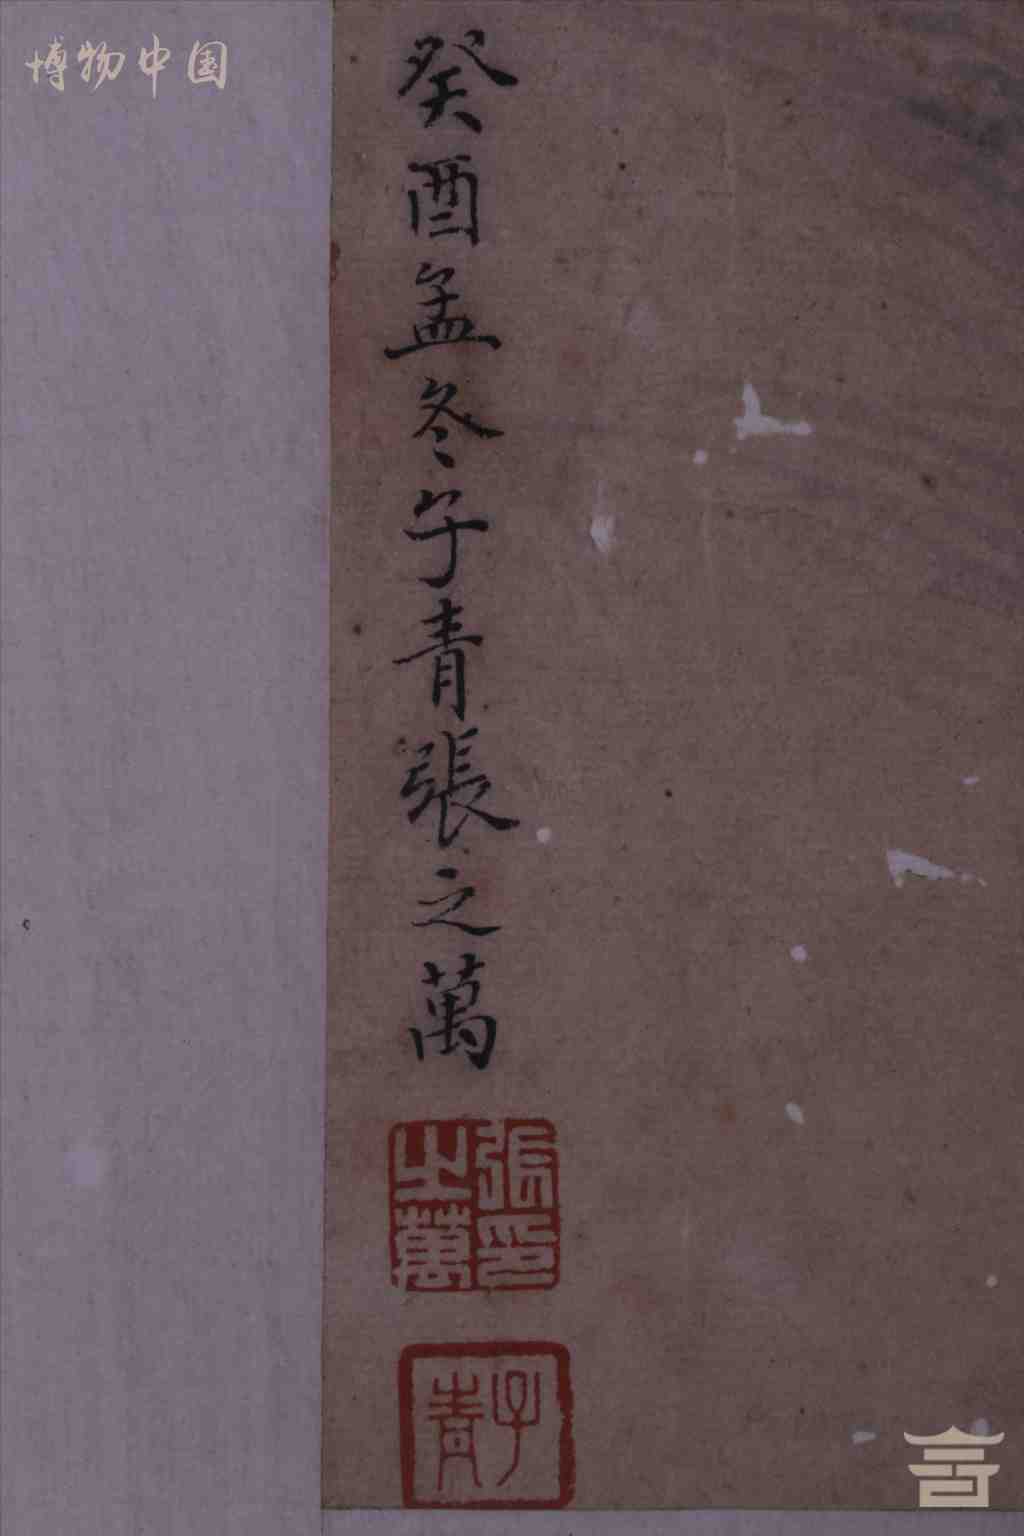 博物中国
癸酉孟冬子青張之萬
張印之萬
子青